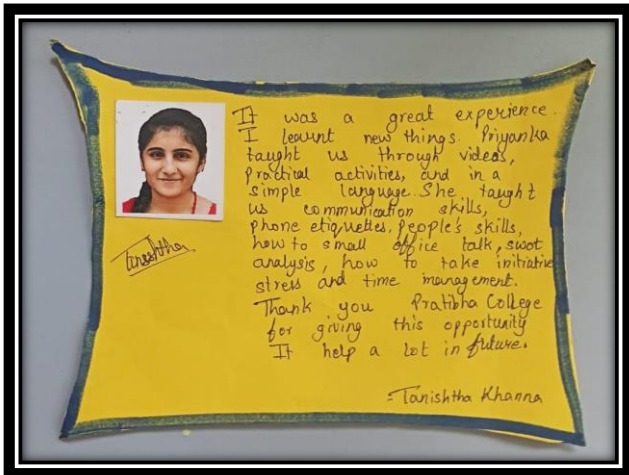 It was a great experience.
I learnt new things. Priyanka
taught us through videos,
Practical activities, and in a
simple language. She taught
us communication skills,
phone etiquettes, people's skills,
how to small office talk, swot
analysis, how to take initiative
stress and time management.
Thank you Pratibha College
for giving this opportunity
It help a lot in future.
Tanishtha
-Tanishtha Khanna